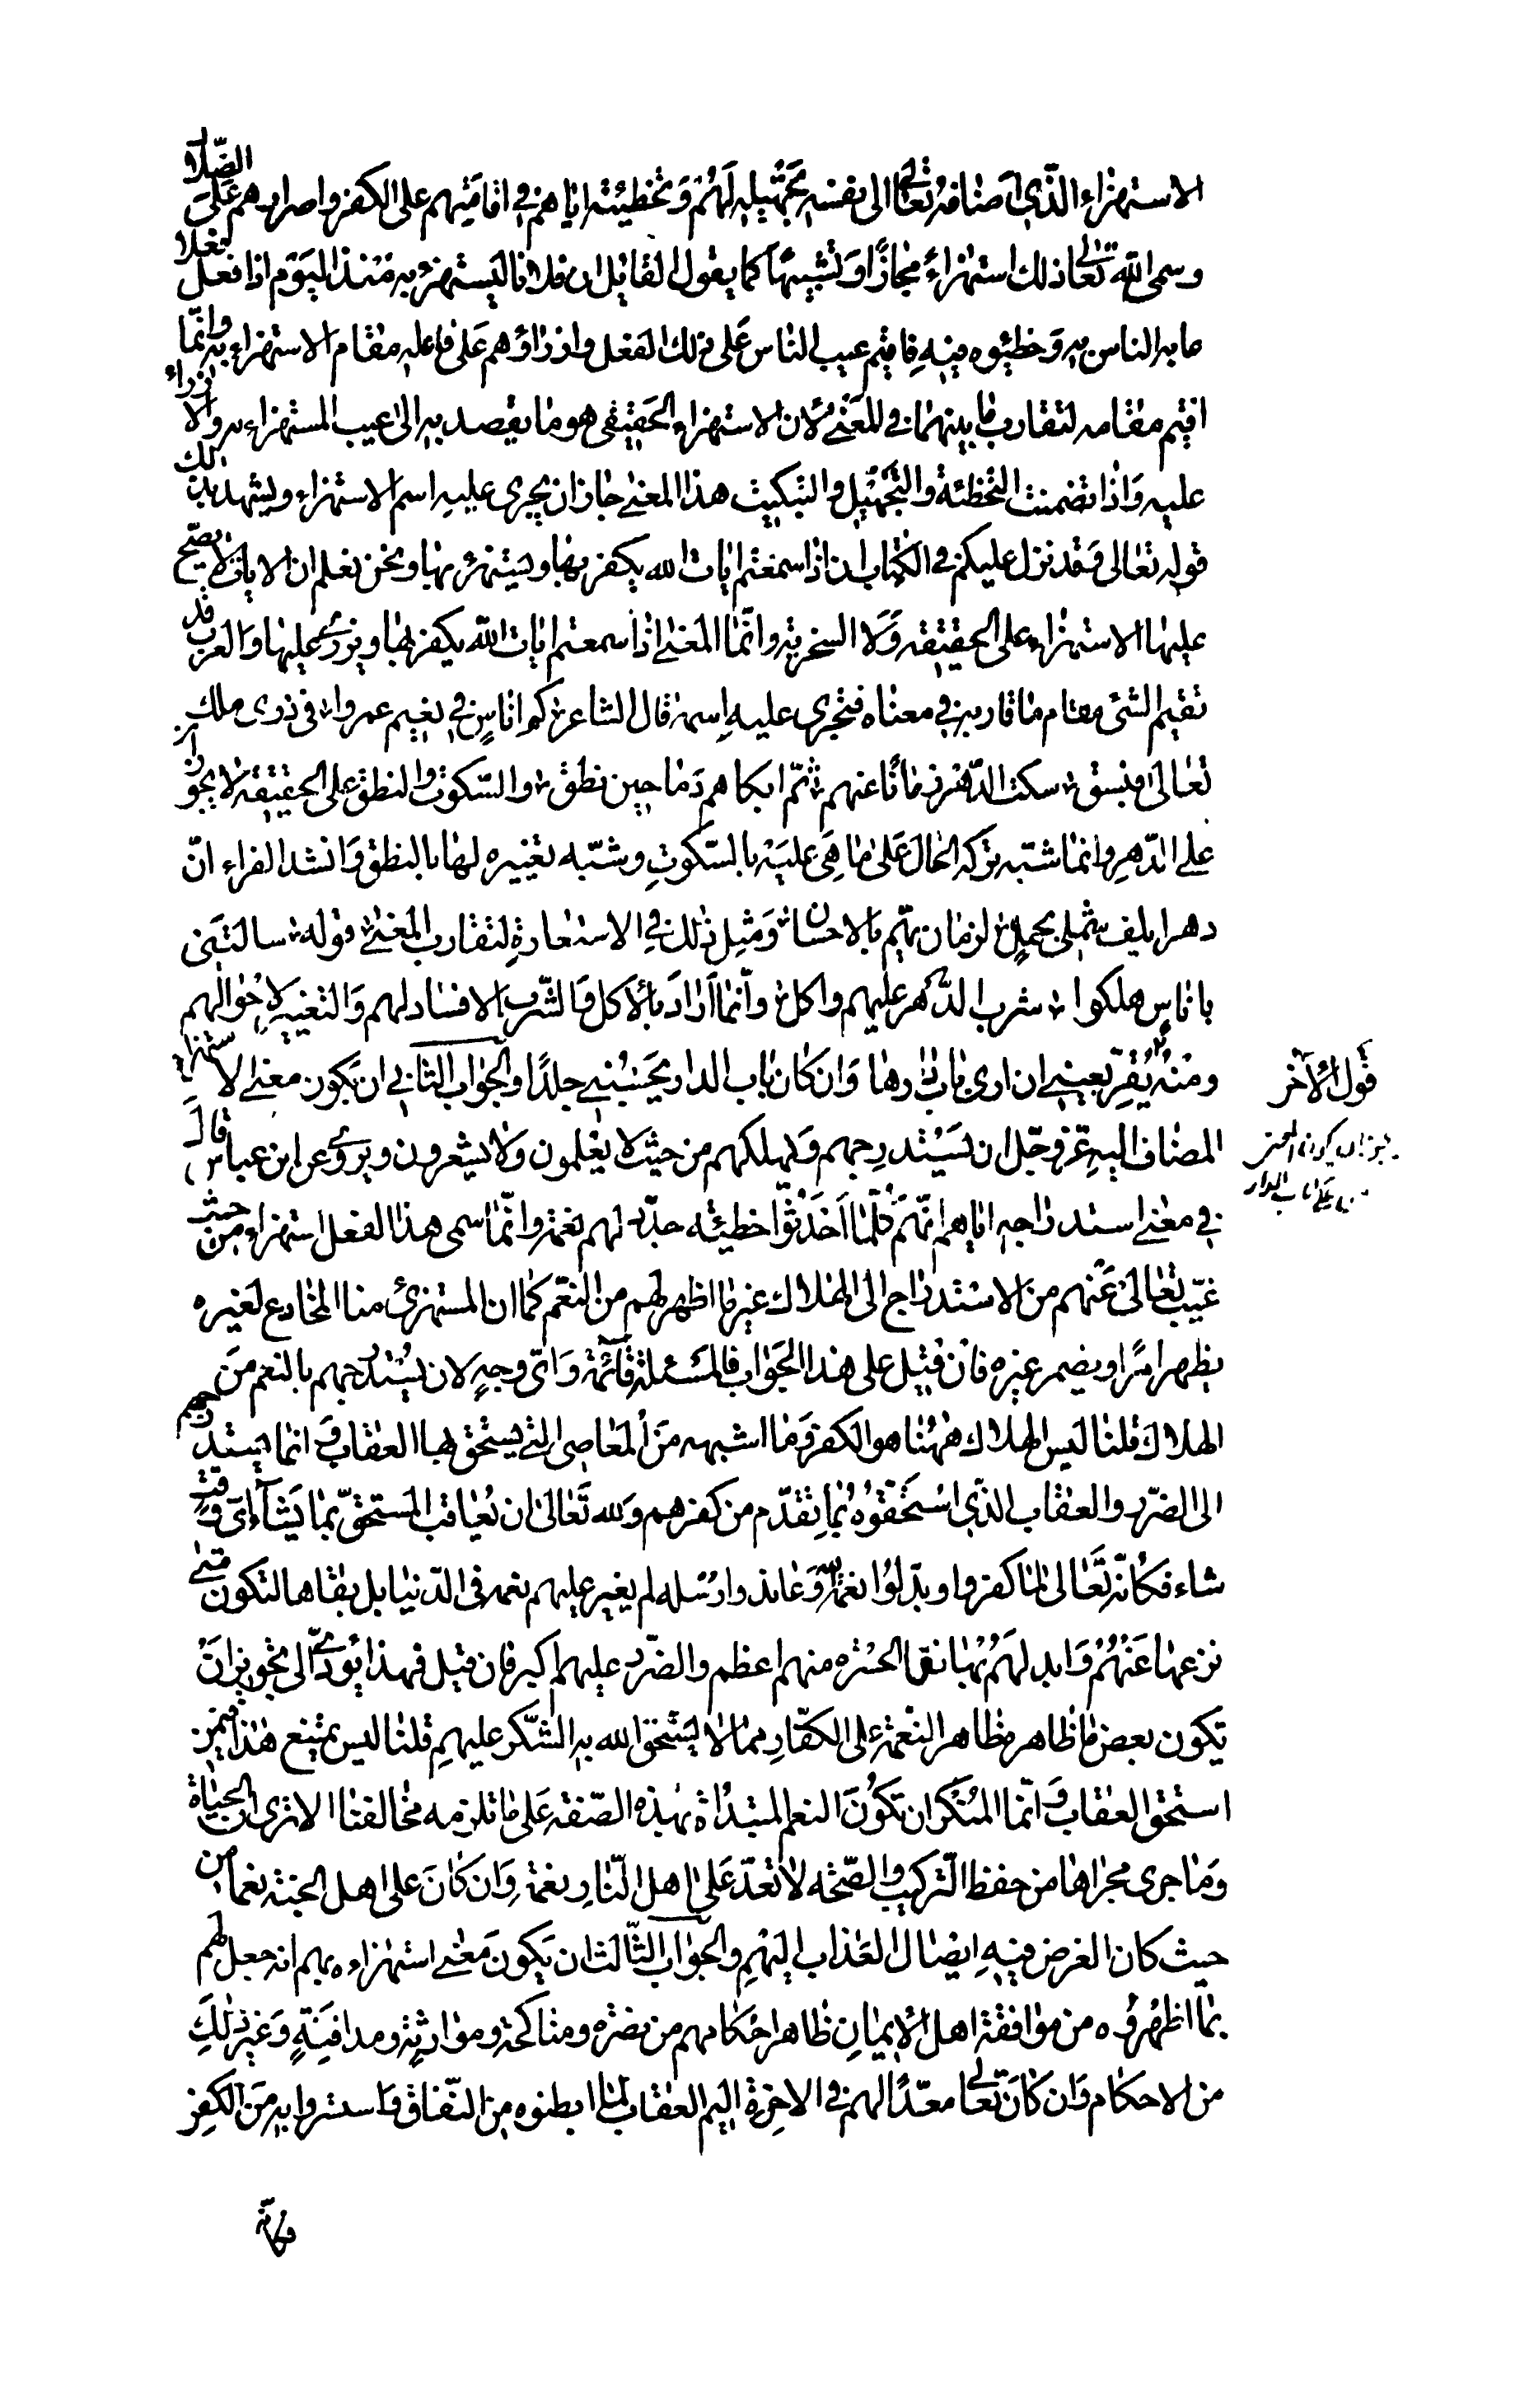 الاستهزاء الذى اضافه تعالى الى نفسه تجهيله لهم وتخطيئته اياهم فى اقامتهم على الكفر واصرارهم على الضلال
وسمى الله تعالى ذلك استهزاء مجازا وتشبيها كما يقول القائل ان فلانا ليستهزئ به منذ اليوم اذا فعل فعلا
عابه الناس به وخطئوه فيه فاقيم عيب الناس على ذلك الفعل وازراؤهم على فاعله مقام الاستهزاء به وانما
اقيم مقامه لتقارب ما بينهما فى المعنى لان الاستهزاء الحقيقى هو ما يقصد به الى عيب المستهزاء به والازراء
عليه واذا تضمنت التخطئة والتجهيل والتبكيت هذا المعنى جاز ان يجرى عليه اسم الاستهزاء ويشهد بذلك
قوله تعالى وقد نزل عليكم فى الكتاب ان اذا سمعتم ايات الله يكفر بها ويستهزئ بها ونحن نعلم ان الايات لا يصح
عليها الاستهزاء على الحقيقه ولا السخريه وانما المعنى اذا سمعتم ايات الله يكفر بها ويزرى عليها والعرب قد
تقيم الشئ مقام ما قاربه فى معناه فتجرى عليه اسمه قال الشاعر كم اناس فى نعيم عمروا فى ذرى ملك
تعالى فبسق سكت الدهر زمانا عنهم ثم ابكاهم دما حين نطق والسكوت والنطق على الحقيقة لا يجوزان
على الدهر وانما شبه تركه الحال على ما هى عليه بالسكوت وشبه تغييره لها بالنطق وانشد الفراء ان
دهرا يلف شملى بجمل لزمان يهم بالاحسان ومثل ذلك فى الاستعارة لتقارب المعنى قوله سالتنى
باناس هلكوا شرب الدهر عليهم واكل وانما اراد بالاكل والشرب الافساد لهم والتغيير لاحوالهم
ومنه يقر بعينى ان ارى باب دارها وان كان باب الدار يحسبنى جلدا والجواب الثانى ان يكون معنى الاستهزاء
قول الآخر
المضاف اليه عز وجل ان يستدرجهم ويهلكهم من حيث لا يعلمون ولا يشعرون ويروى عن ابن عباس قال
فى معنى استدراجه اياهم انهم كلما احدثوا خطيئه جدد لهم نعمة وانما سمى هذا الفعل استهزاء من حيث
غيب تعالى عنهم من الاستدراج الى الهلاك غير ما اظهر لهم من النعم كما ان المستهزئ منا المخادع لغيره
يظهر امرا ويضمر غيره فان قيل على هذا الجواب فالمسئلة قائمة واى وجه لان يستدرجهم بالنعم من
الهلاك قلنا ليس الهلاك ههنا هو الكفر وما اشبهه من المعاصى التى يستحق بها العقاب وانما يستدرجهم
الى الضرر والعقاب الذى استحقوه بما تقدم من كفرهم ولله تعالى ان يعاقب المستحق بما يشاء اى وقت
شاء فكانه تعالى لما كفروا وبدلوا نعمة الله وعاندوا رسله لم يغير عليهم نعمه فى الدنيا بل بقاها لتكون متى
نزعها عنهم وابدلهم بها نقما الحسره منهم اعظم والضرر عليهم اكبر فان قيل فهذا يؤدى الى تجويز ان
يكون بعض ما ظاهره ظاهر النعمة على الكفار مما لا يستحق الله به الشكر عليهم قلنا ليس يمتنع هذا فيمن
استحق العقاب وانما المنكر ان تكون النعم المبتداة بهذه الصفه على ما تلزمه مخالفنا الا ترى ان الحياة
وما جرى مجراها من حفظ التركيب والصحه لا تعد على اهل النار نعمة وان كان على اهل الجنة نعما من
حيث كان الغرض فيه ايصال العذاب اليهم والجواب الثالث ان يكون معنى استهزاءه بهم انه جعل لهم
بما اظهروه من موافقة اهل الايمان ظاهر احكامهم من نصره ومناكحة وموارثة ومدافنة وغير ذلك
من الاحكام وان كان تعالى معدا لهم فى الاخرة اليم العقاب لما ابطنوه من النفاق واستروا به من الكفر
فكانه